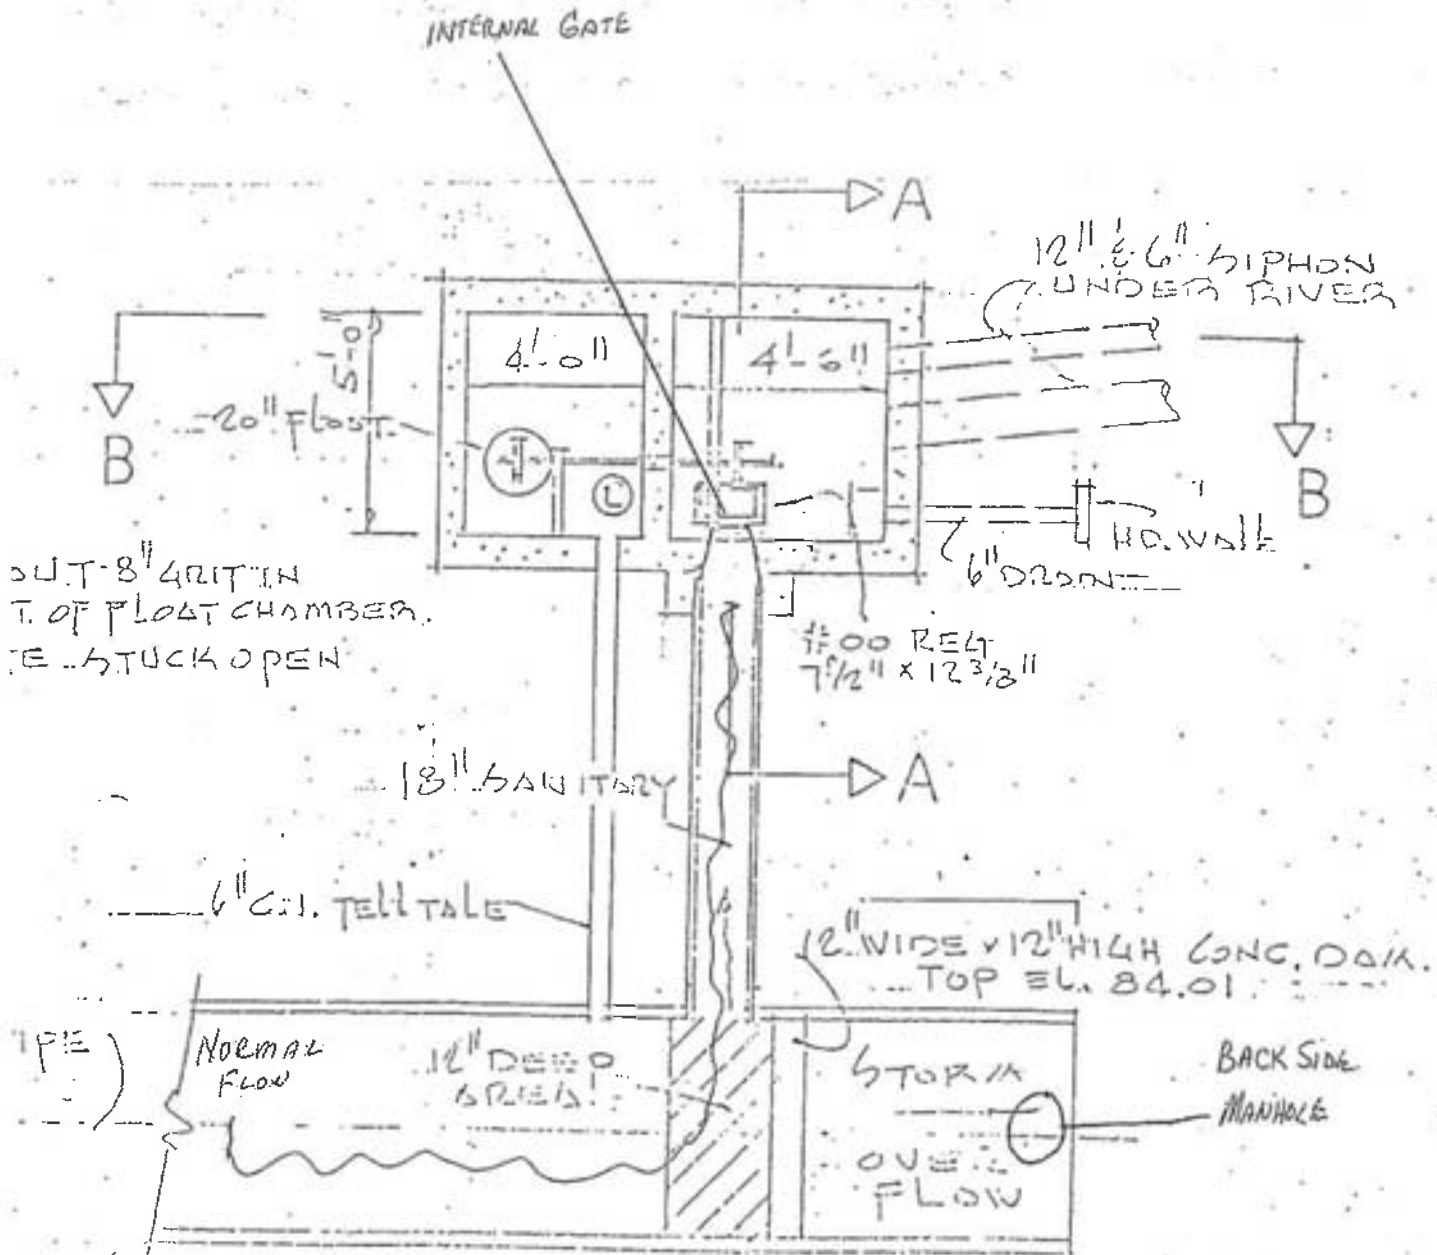 INTERNAL GATE
A
12" & 6" SIPHON
UNDER RIVER
4'-0"
4'-6"
5'-0"
20" FLOAT
B
B
L
HD. WALL
6" DRAIN
8" GRIT IN
OF FLOAT CHAMBER.
STUCK OPEN
#00 REG
7 1/2" x 12 3/8"
18" SANITARY
A
6" C.I. TELL TALE
12" WIDE x 12" HIGH CONC. DAM.
TOP EL. 84.01
NORMAL
FLOW
12" DEEP
AREA
STORM
OVER
FLOW
BACK SIDE
MANHOLE